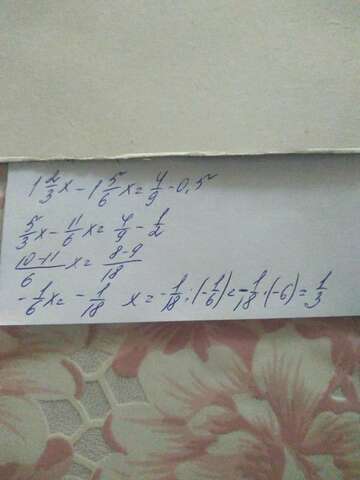 1 2/3 x - 1 5/6 x = 4/9 - 0,5
5/3 x - 11/6 x = 4/9 - 1/2
10-11/6 x = 8-9/18
- 1/6 x = - 1/18 x = - 1/18 : (- 1/6) = - 1/18 · (-6) = 1/3